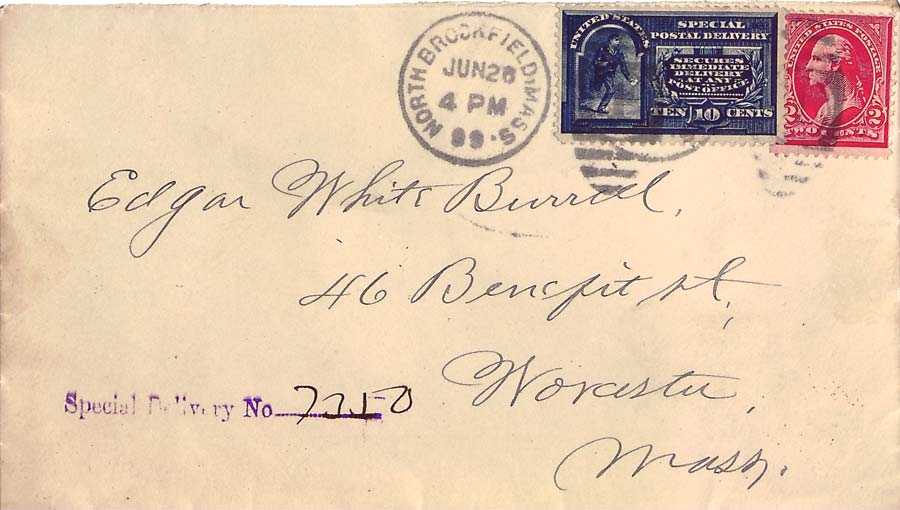 NORTH BROOKFIELD, MASS.
JUN 26
4 PM
99
UNITED STATES
SPECIAL
POSTAL DELIVERY
SECURES
IMMEDIATE
DELIVERY
AT ANY
POST OFFICE
TEN 10 CENTS
UNITED STATES POSTAGE
2 2
TWO CENTS
Edgar White Burrell,
46 Benefit st,
Worcester,
Mass.
Special Delivery No